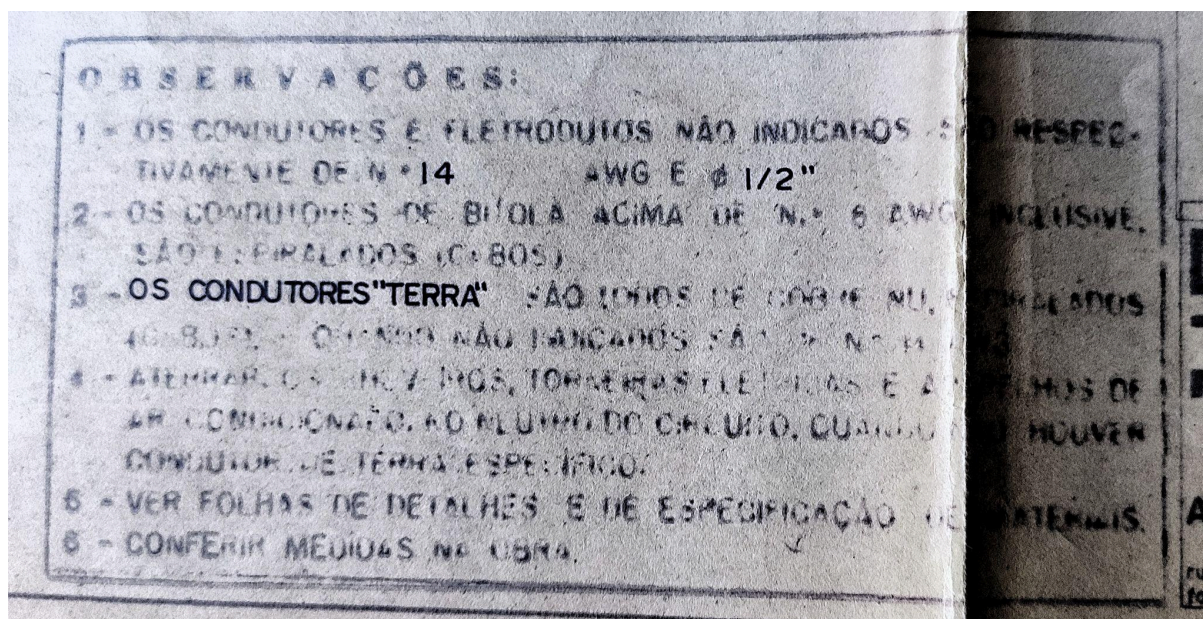 OBSERVAÇÕES:
1 - OS CONDUTORES E ELETRODUTOS NÃO INDICADOS SÃO RESPEC-
TIVAMENTE DE N.º 14 AWG E ø 1/2"
2 - OS CONDUTORES DE BITOLA ACIMA DE N.º 6 AWG INCLUSIVE,
SÃO ESPIRALADOS (CABOS)
3 - OS CONDUTORES "TERRA" SÃO TODOS DE COBRE NU, ESPIRALADOS
(CABOS). QUANDO NÃO SÃO DE N.º
4 - ATERRAR OS CHUVEIROS, TORNEIRAS ELÉTRICAS E APARELHOS DE
AR CONDICIONADO, AO NEUTRO DO CIRCUITO, QUANDO NÃO HOUVER
CONDUTOR DE TERRA ESPECÍFICO.
5 - VER FOLHAS DE DETALHES E DE ESPECIFICAÇÃO DE MATERIAIS.
6 - CONFERIR MEDIDAS NA OBRA.